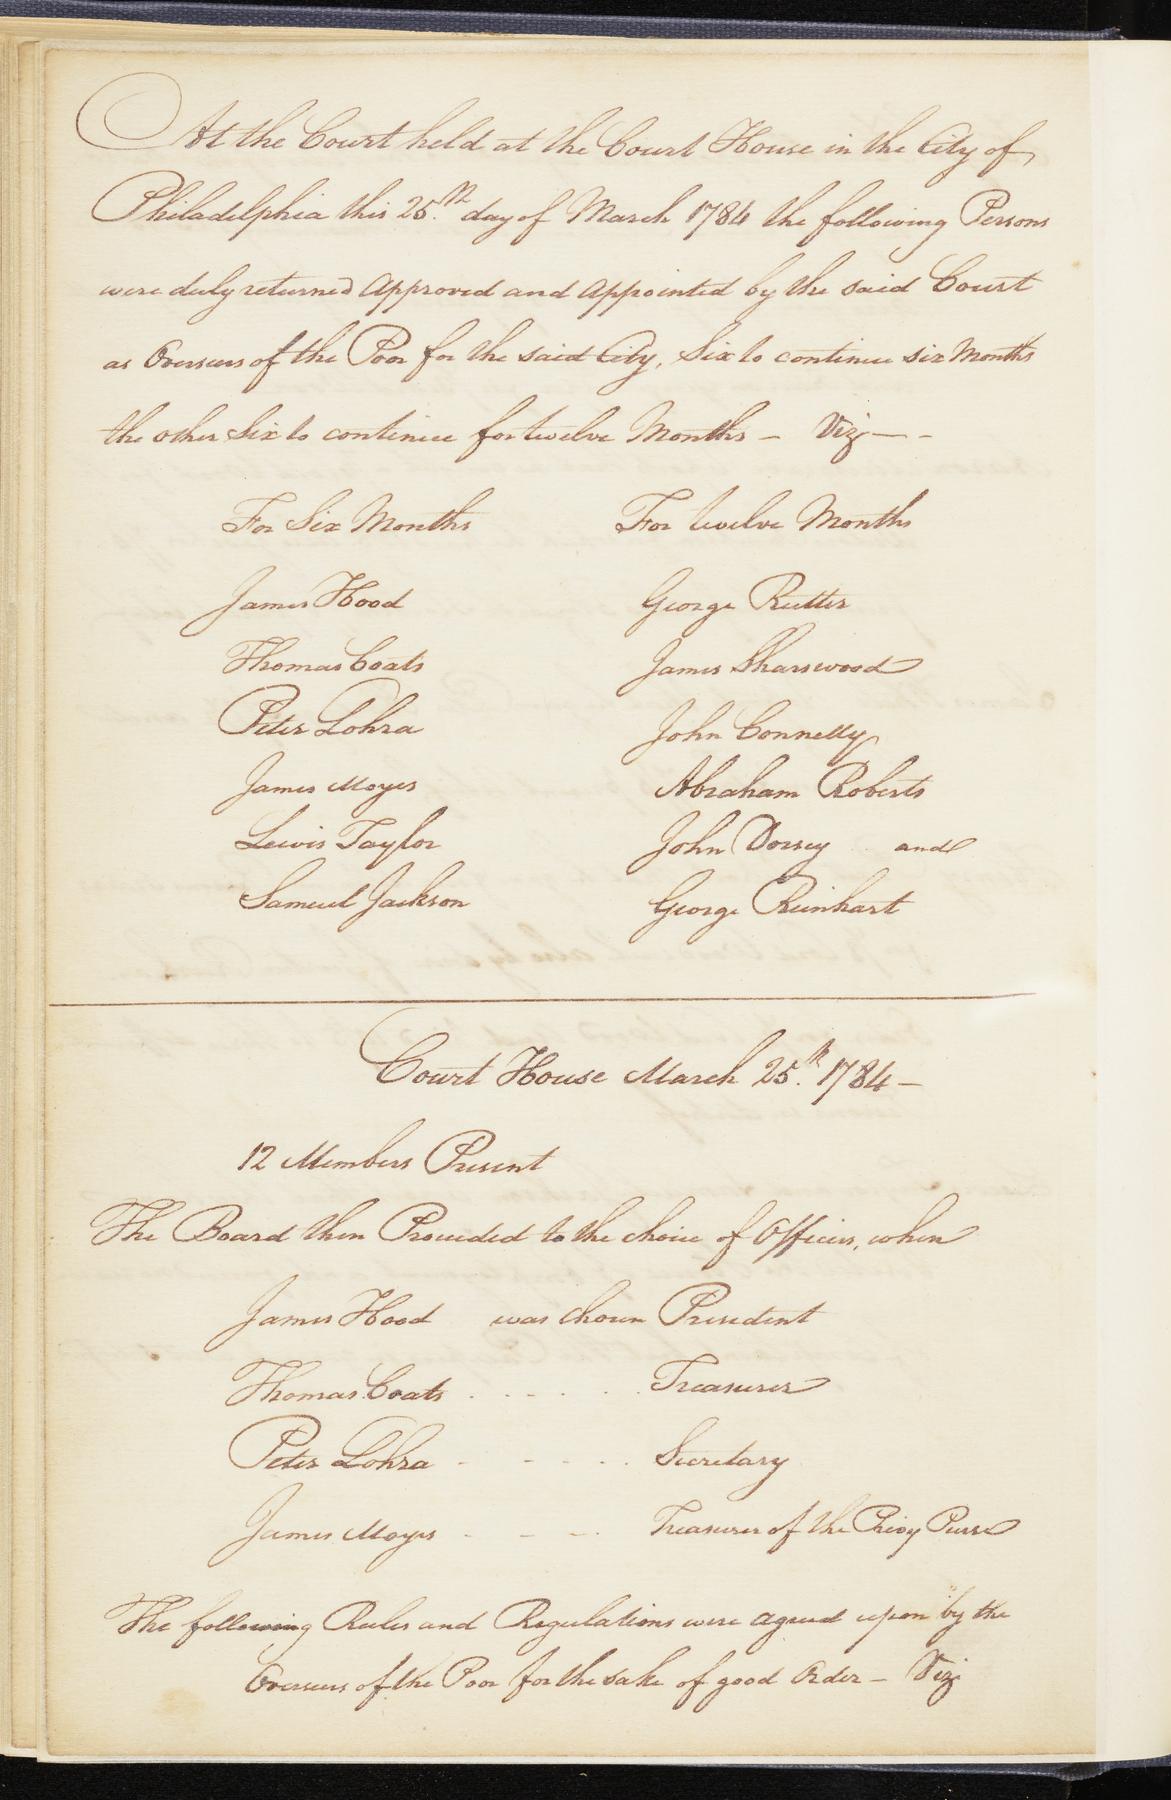 At the Court held at the Court House in the City of
Philadelphia this 25.th day of March 1784 the following Persons
were duly returned Approved and Appointed by the said Court
as Overseers of the Poor for the said City, Six to continue six Months
the other Six to continue for twelve Months – Viz — -
For Six Months For twelve Months
James Hood George Rutter
Thomas Coats James Sharswood
Peter Lohra John Connelly
James Moyes Abraham Roberts
Lewis Taylor John Dorsey and
Samuel Jackson George Reinhart
Court House March 25.th 1784 –
12 Members Present
The Board then Proceeded to the choice of Officers, when
James Hood was chosen President
Thomas Coats . - - . . . Treasurer
Peter Lohra - - - - . . Secretary
James Moyes - - - . Treasurer of the Privy Purse
The following Rules and Regulations were agreed upon by the
Overseers of the Poor for the sake of good Order – Viz